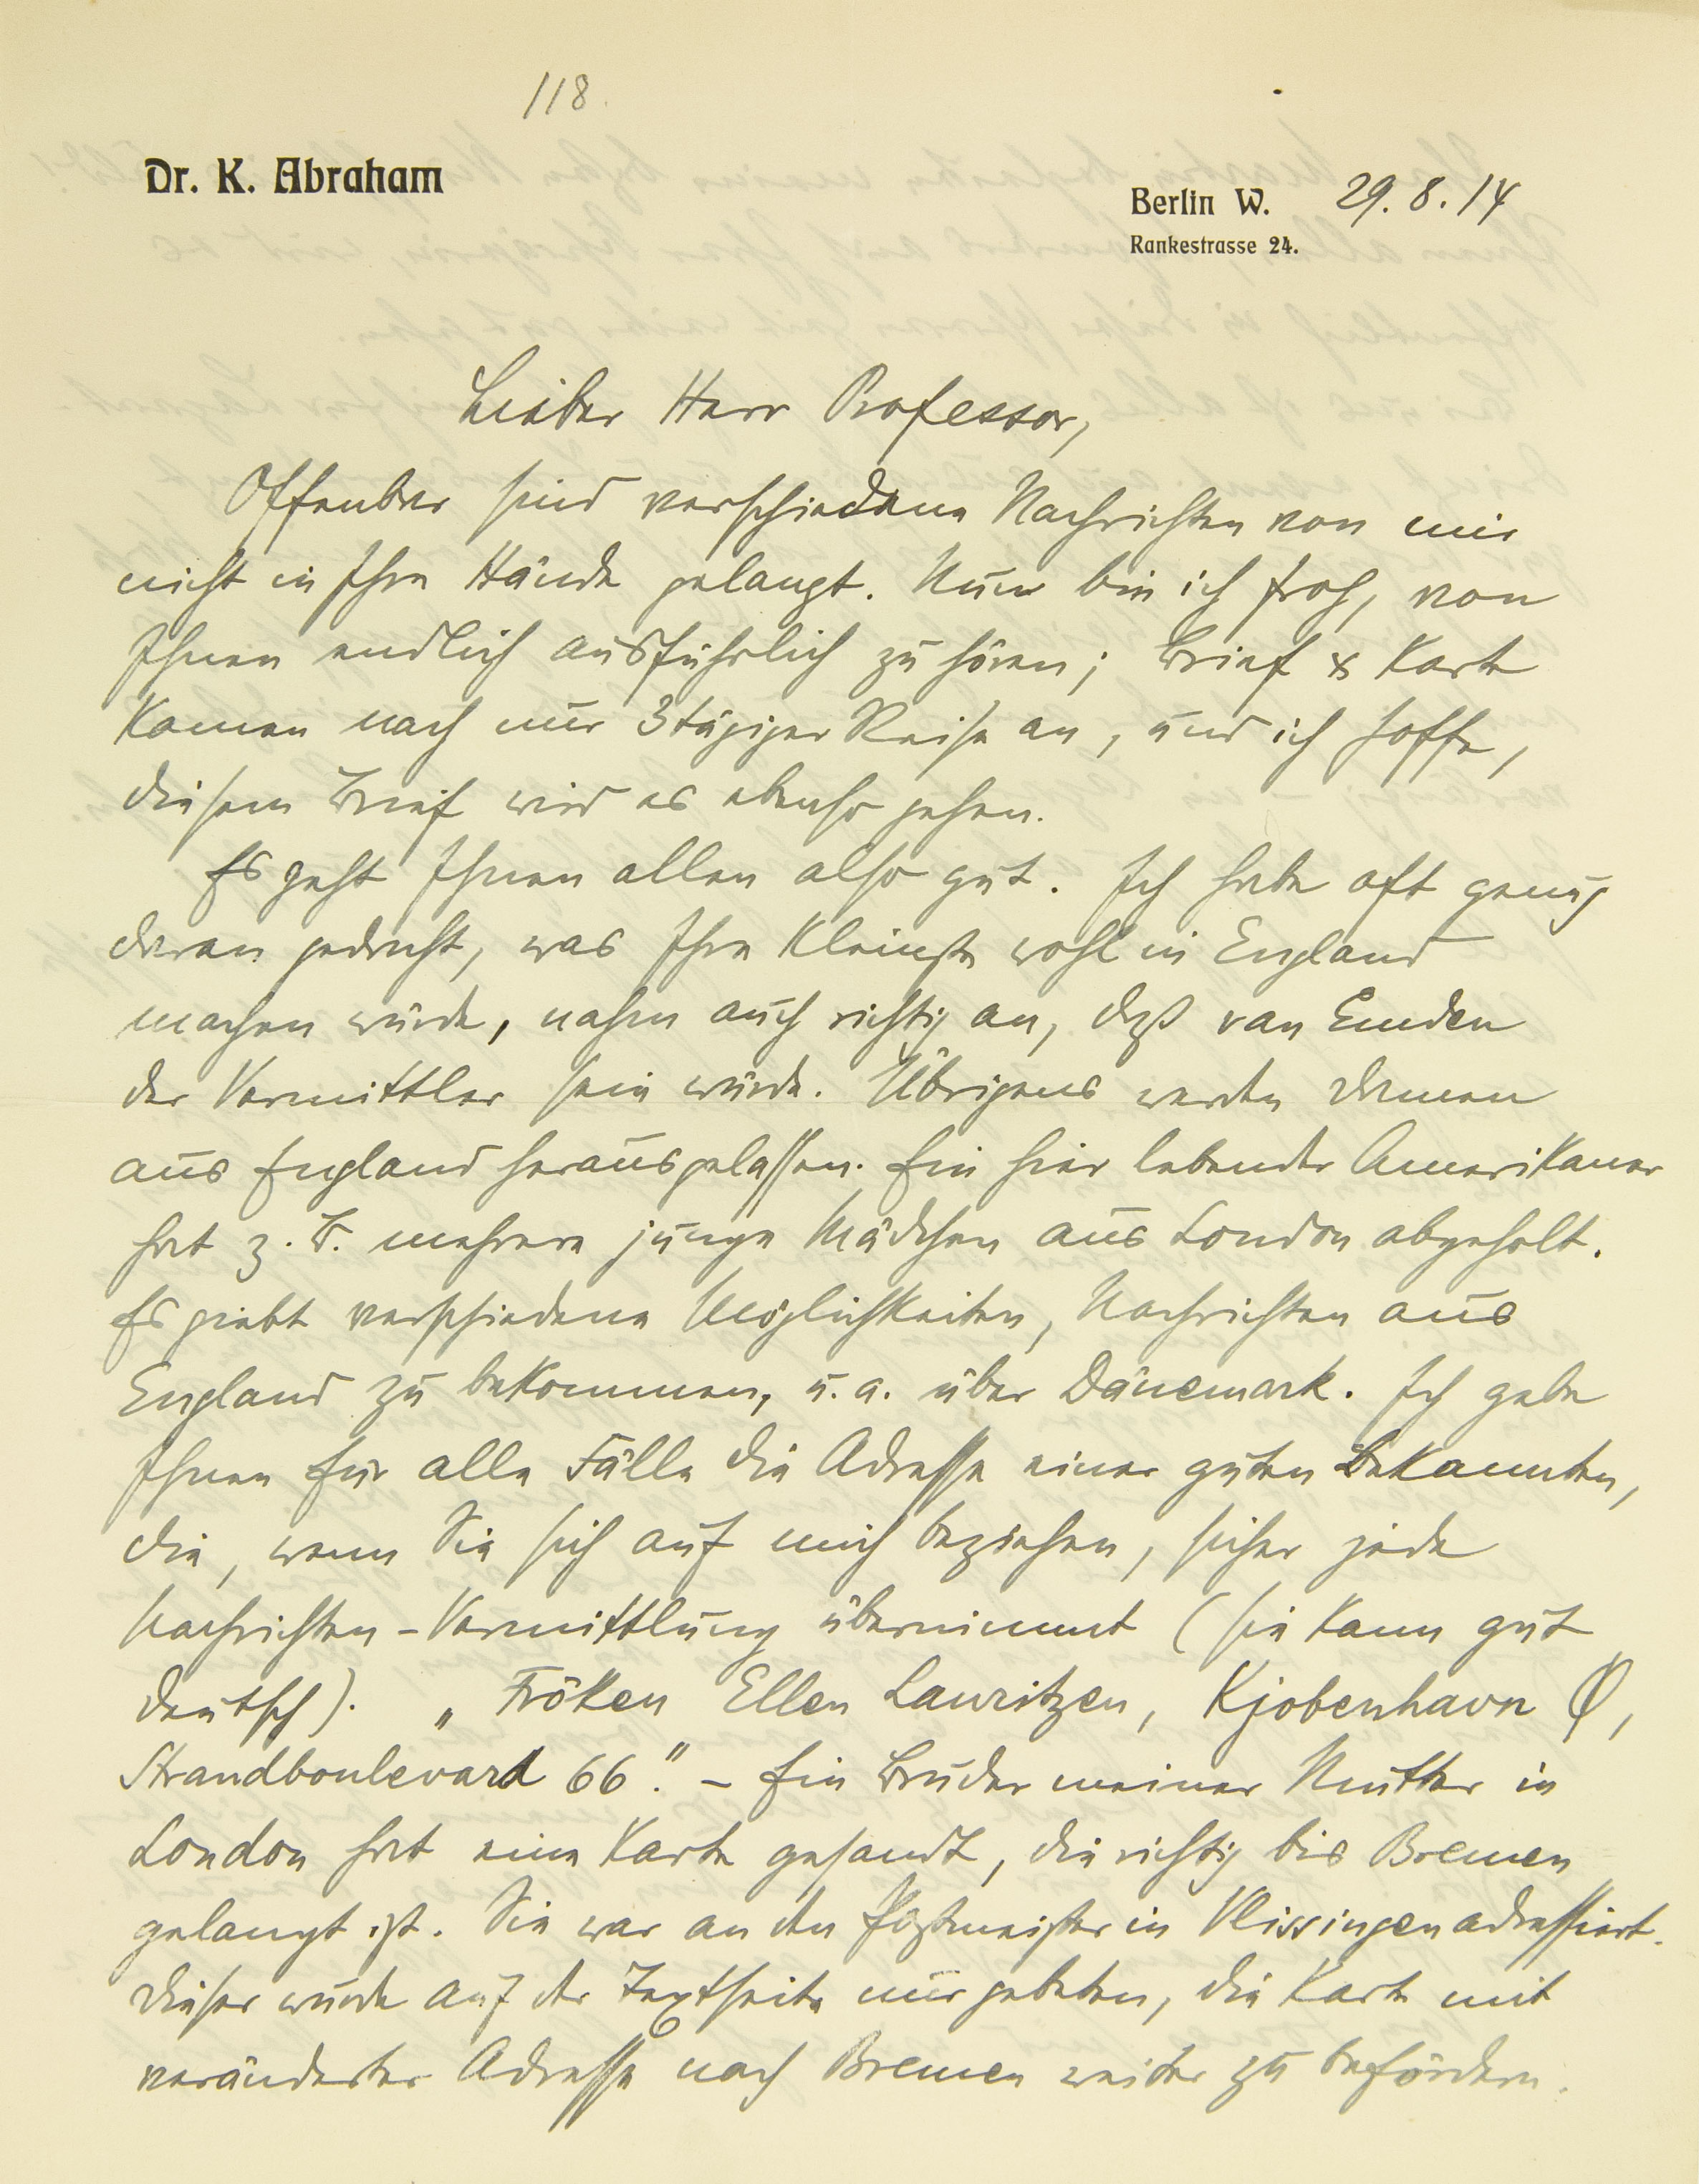 118
Dr. K. Abraham
Berlin W. 29.8.14
Rankestrasse 24.
Lieber Herr Professor,
Offenbar sind verschiedene Nachrichten von mir
nicht in Ihre Hände gelangt. Nun bin ich froh, von
Ihnen endlich ausführlich zu hören; Brief & Karte
kamen nach nur 3tägiger Reise an, und ich hoffe,
diesem Brief wird es ebenso gehen.
Es geht Ihnen allen also gut. Ich habe oft genug
daran gedacht, was Ihre Kleinste wohl in England
machen würde, nahm auch richtig an, daß van Emden
der Vermittler sein würde. Übrigens werden Damen
aus England herausgelassen. Ein hier lebender Amerikaner
hat z. B. mehrere junge Mädchen aus London abgeholt.
Es giebt verschiedene Möglichkeiten, Nachrichten aus
England zu bekommen, u. a. über Dänemark. Ich gebe
Ihnen für alle Fälle die Adresse einer guten Bekannten,
die, wenn Sie sich auf mich beziehen, sicher jede
Nachrichten-Vermittlung übernimmt (sie kann gut
deutsch). „Fröken Ellen Lauritzen, Kjobenhavn Ø,
Strandboulevard 66". – Ein Bruder meiner Mutter in
London hat eine Karte gesandt, die richtig bis Bremen
gelangt ist. Sie war an den Postmeister in Vlissingen adressiert.
Dieser wurde auf der Textseite nur gebeten, die Karte mit
veränderter Adresse nach Bremen weiter zu befördern.